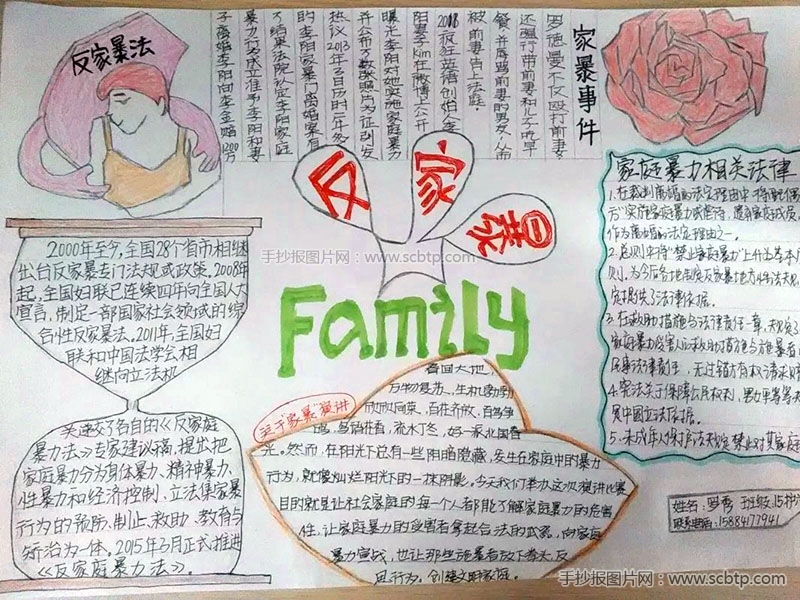 反家暴法
家暴事件
罗德曼不仅殴打前妻
还强行带前妻和儿子吃早
餐,并辱骂前妻的男友,从而
被前妻告上法庭。
疯狂英语创始人李
阳妻子Kim在微博上公开
曝光李阳对她实施家庭暴力
并公布了数张照片为证引发
热议2013年3月历时一年多
的李阳家暴门离婚案有
了结果法院认定李阳家庭
暴力行为成立准予李阳和妻
子离婚李阳向李金赔1200万
反家暴
手抄报图片网:www.scbtp.com
Family
2000年至今,全国28个省市相继
出台反家暴专门法规或政策。2008年
起,全国妇联已连续四年向全国人大
宣言,制定一部国家社会领域的综
合性反家暴法。2011年,全国妇
联和中国法学会相
继向立法机
关递交了各自的《反家庭
暴力法》专家建议稿,提出把
家庭暴力分为身体暴力、精神暴力、
性暴力和经济控制,立法集家暴
行为的预防、制止、救助、教育与
矫治为一体。2015年3月正式推进
《反家庭暴力法》。
关于"家暴"演讲
春回大地,
万物复苏,生机勃勃
欣欣向荣,百花齐放,百鸟争
鸣,鸟语花香,流水丁冬,好一派北国春
光。然而,在阳光下总有一些阴暗隐藏,发生在家庭中的暴力
行为,就像灿烂阳光下的一抹阴影。今天我们举办这次演讲比赛
目的就是让社会家庭的每一个人都能了解家庭暴力的危害
性,让家庭暴力的受害者拿起合法的武器,向家庭
暴力宣战,也让那些施暴者放下拳头,反
思行为。创建文明家庭。
家庭暴力相关法律
1.在裁判离婚的法定理由中,将配偶
方"实施家庭暴力或虐待、遗弃家庭成员
作为离婚的法定理由之一。
2.总则中将"禁止家庭暴力"上升到基本
则,为今后各地制定反家暴地方性法规
定提供了法律依据。
3.在救助措施与法律责任一章,规定了
家庭暴力受害人的救助措施与施暴者
民事法律责任,无过错方有权请求
4.宪法关于保障公民权利,男女平等
是中国立法依据。
5.未成年人保护法规定禁止对其家庭
姓名:罗秀 班级:15护
联系电话:15884177941
手抄报图片网:www.scbtp.com